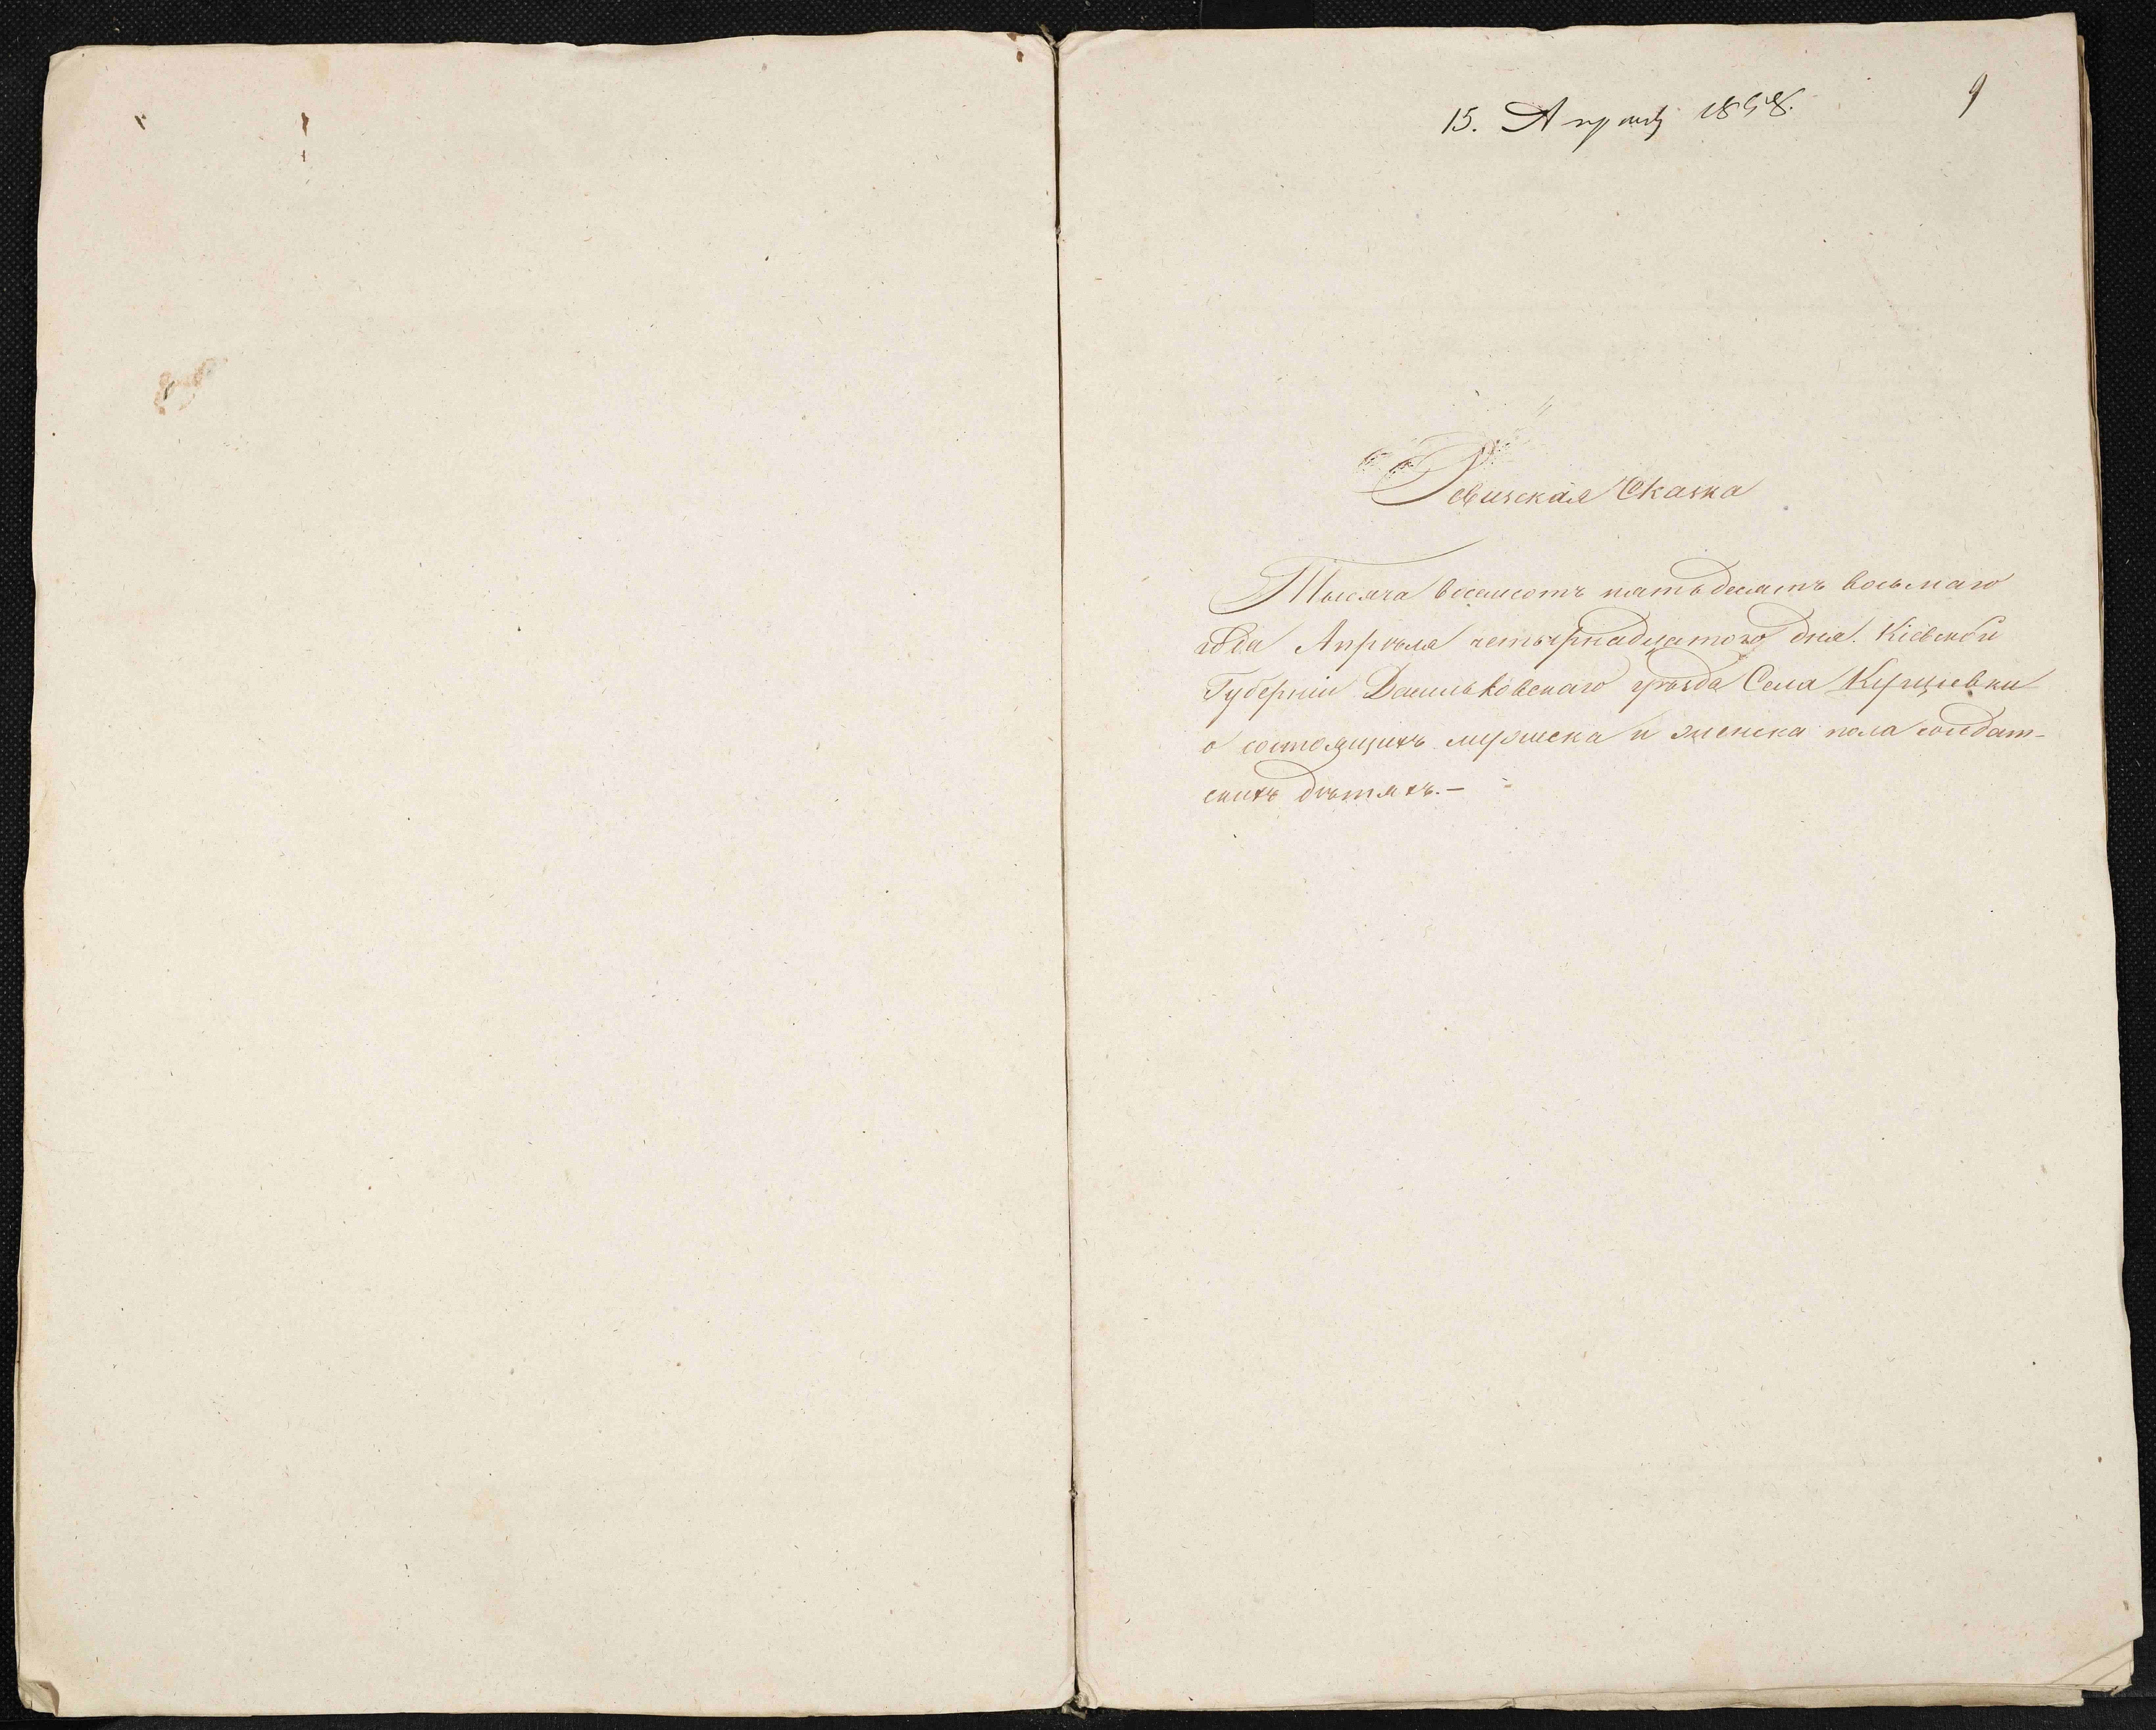 15. Апрѣля 1858.
9
Ревизская Сказка
Тысяча восемсотъ пятьдесятъ восьмаго
года Апрѣля четырнадцатого дня. Кіевской
Губерніи Васильковскаго уѣзда Села
о состоящихъ мужеска и женска пола солдат-
скихъ дѣтяхъ.—